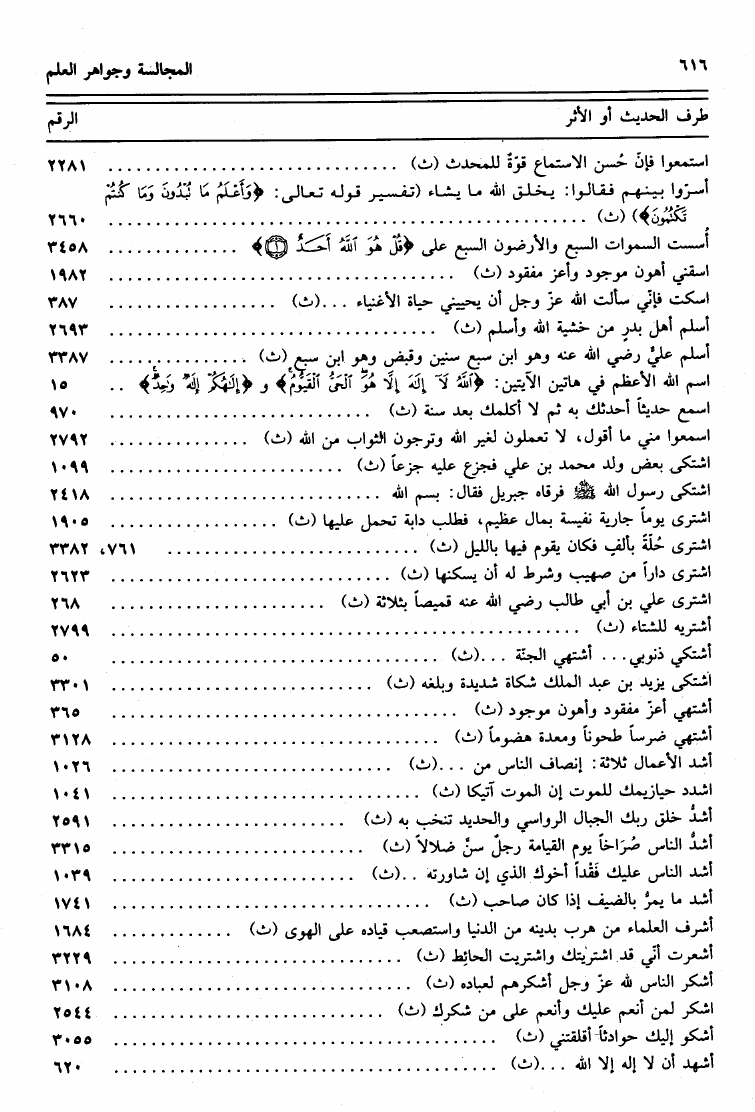 ٦١٦ المجالسة وجواهر العلم
طرف الحديث أو الأثر الرقم
استمعوا فإنّ حُسن الاستماع قوّةٌ للمحدث (ث) ٢٢٨١
أسرّوا بينهم فقالوا: يخلق الله ما يشاء (تفسير قوله تعالى: ﴿وَأَعْلَمُ مَا تُبْدُونَ وَمَا كُنتُمْ
تَكْتُمُونَ﴾) (ث) ٢٦٦٠
أُسست السموات السبع والأرضون السبع على ﴿قُلْ هُوَ ٱللَّهُ أَحَدٌ ١﴾ ٣٤٥٨
اسقني أهون موجود وأعز مفقود (ث) ١٩٨٢
اسكت فإنّي سألت الله عزّ وجل أن يحييني حياة الأغنياء ...(ث) ٣٨٧
أسلم أهل بدرٍ من خشية الله وأسلم (ث) ٢٦٩٣
أسلم عليٌّ رضي الله عنه وهو ابن سبع سنين وقبض وهو ابن سبع (ث) ٣٣٨٧
اسم الله الأعظم في هاتين الآيتين: ﴿ٱللَّهُ لَآ إِلَٰهَ إِلَّا هُوَ ٱلْحَىُّ ٱلْقَيُّومُ﴾ و ﴿وَإِلَٰهُكُمْ إِلَٰهٌ وَٰحِدٌ﴾ ١٥
اسمع حديثاً أحدثك به ثم لا أكلمك بعد سنة (ث) ٩٧٠
اسمعوا مني ما أقول، لا تعملون لغير الله وترجون الثواب من الله (ث) ٢٧٩٢
اشتكى بعض ولد محمد بن علي فجزع عليه جزعاً (ث) ١٠٩٩
اشتكى رسول الله ﷺ فرقاه جبريل فقال: بسم الله ٢٤١٨
اشترى يوماً جارية نفيسة بمال عظيم، فطلب دابة تحمل عليها (ث) ١٩٠٥
اشترى حُلّةً بألفٍ فكان يقوم فيها بالليل (ث) ٧٦١، ٣٣٨٢
اشترى داراً من صهيب وشرط له أن يسكنها (ث) ٢٦٢٣
اشترى علي بن أبي طالب رضي الله عنه قميصاً بثلاثة (ث) ٢٦٨
أشتريه للشتاء (ث) ٢٧٩٩
أشتكي ذنوبي... أشتهي الجنّة ...(ث) ٥٠
اشتكى يزيد بن عبد الملك شكاة شديدة وبلغه (ث) ٣٣٠١
أشتهي أعزّ مفقود وأهون موجود (ث) ٣٦٥
أشتهي ضرساً طحوناً ومعدة هضوماً (ث) ٣١٢٨
أشد الأعمال ثلاثة: إنصاف الناس من ...(ث) ١٠٢٦
اشدد حيازيمك للموت إن الموت آتيكا (ث) ١٠٤١
أشدُّ خلق ربك الجبال الرواسي والحديد تنخب به (ث) ٢٥٩١
أشدُّ الناس صُرَاخاً يوم القيامة رجلٌ سنَّ ضلالاً (ث) ٣٣١٥
أشد الناس عليك فَقْداً أخوك الذي إن شاورته ..(ث) ١٠٣٩
أشد ما يمرُّ بالضيف إذا كان صاحب (ث) ١٧٤١
أشرف العلماء من هرب بدينه من الدنيا واستصعب قياده على الهوى (ث) ١٦٨٤
أشعرت أنّي قد اشتريتك واشتريت الحائط (ث) ٣٢٢٩
أشكر الناس لله عزّ وجل أشكرهم لعباده (ث) ٣١٠٨
اشكر لمن أنعم عليك وأنعم على من شكرك (ث) ٢٥٤٤
أشكو إليك حوادثاً أقلقتني (ث) ٣٠٥٥
أشهد أن لا إله إلا الله ...(ث) ٦٢٠